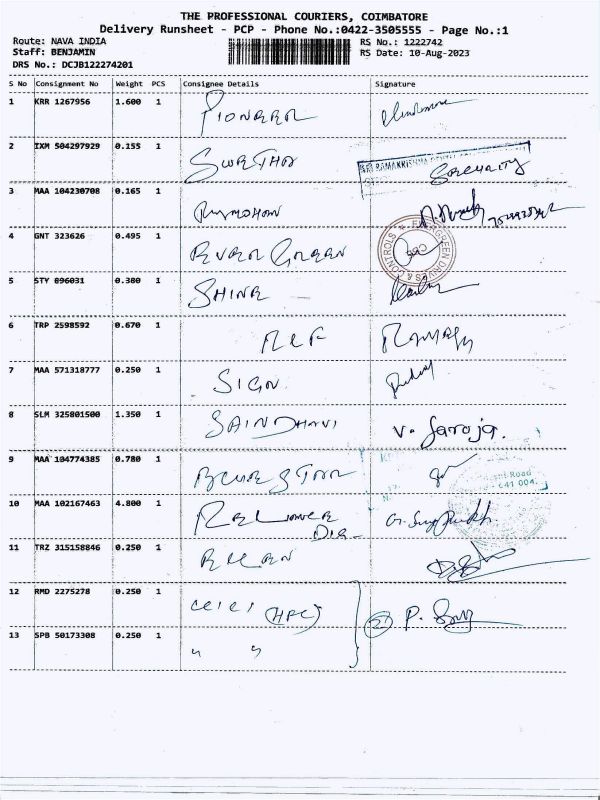 THE PROFESSIONAL COURIERS, COIMBATORE
Delivery Runsheet - PCP - Phone No.:0422-3505555 - Page No.:1
Route: NAVA INDIA
RS No.: 1222742
Staff: BENJAMIN
RS Date: 10-Aug-2023
DRS No.: DCJB122274201
S No Consignment No Weight PCS Consignee Details Signature
1 KRR 1267956 1.600 1 PIONEER
2 IXM 504297929 0.155 1 SWETHA SECURITY
3 MAA 104230708 0.165 1
4 GNT 323626 0.495 1 EVER GREEN
5 STY 896031 0.380 1 SHINE
6 TRP 2598592 0.670 1
7 MAA 571318777 0.250 1 SIGN
8 SLM 325801500 1.350 1 SAINDHAVI V. Saroja.
9 MAA 104774385 0.780 1 BLUE STAR
Road
641 004.
10 MAA 102167463 4.800 1 RELIANCE
11 TRZ 315158846 0.250 1
12 RMD 2275278 0.250 1 ICICI (HPC)
13 SPB 50173308 0.250 1 " "